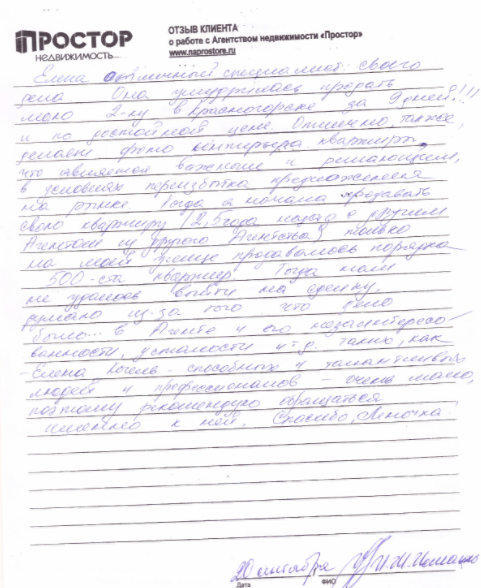 ПРОСТОР
НЕДВИЖИМОСТЬ
ОТЗЫВ КЛИЕНТА
о работе с Агентством недвижимости «Простор»
www.naprostore.ru
Елена отличный специалист своего
дела Она умудрилась продать
мою 2-ку в Красногорске за 9 дней!!!
и по достойной цене. Отлично также
делает фото интерьера квартиры,
что является важным и решающим,
в условиях переизбытка предложения
на рынке. Когда я начала продавать
свою квартиру (2,5 года назад с другим
Агентом из другого Агентства) только
на моей улице продавалось порядка
500-ста квартир. Тогда нам
не удалось выйти на сделку,
думаю из-за того что дело
было... в Агенте и его незаинтересо-
ванности, усталости и т.д. таких, как
Елена, очень способных и талантливых
людей и профессионалов - очень мало,
поэтому рекомендую обращаться
именно к ней. Спасибо, Леночка.
20 сентября
Дата
ФИО